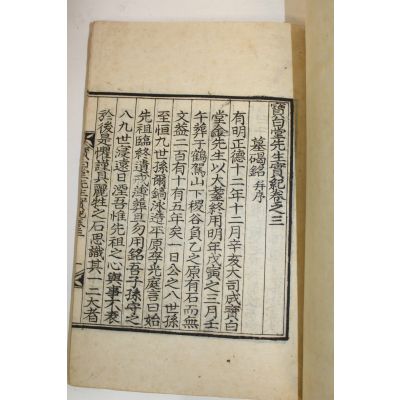 寶白堂先生實紀卷之三
墓碣銘 并序
有明正德十二年十二月辛亥大司成寶白
堂金先生以大耋終用明年戊寅之三月壬
午葬于鶴駕山下稷谷負乙之原有石而無
文蓋二百有十有五年矣一日公之八世孫
至恒九世孫爾鍋泳造平原李光庭言曰始
先祖臨終遺戒薄葬且勿用銘吾子孫守之
八九世浸遠日湮吾惟先祖之心與事不表
於後是懼謹具麗牲之石思識其一二大者